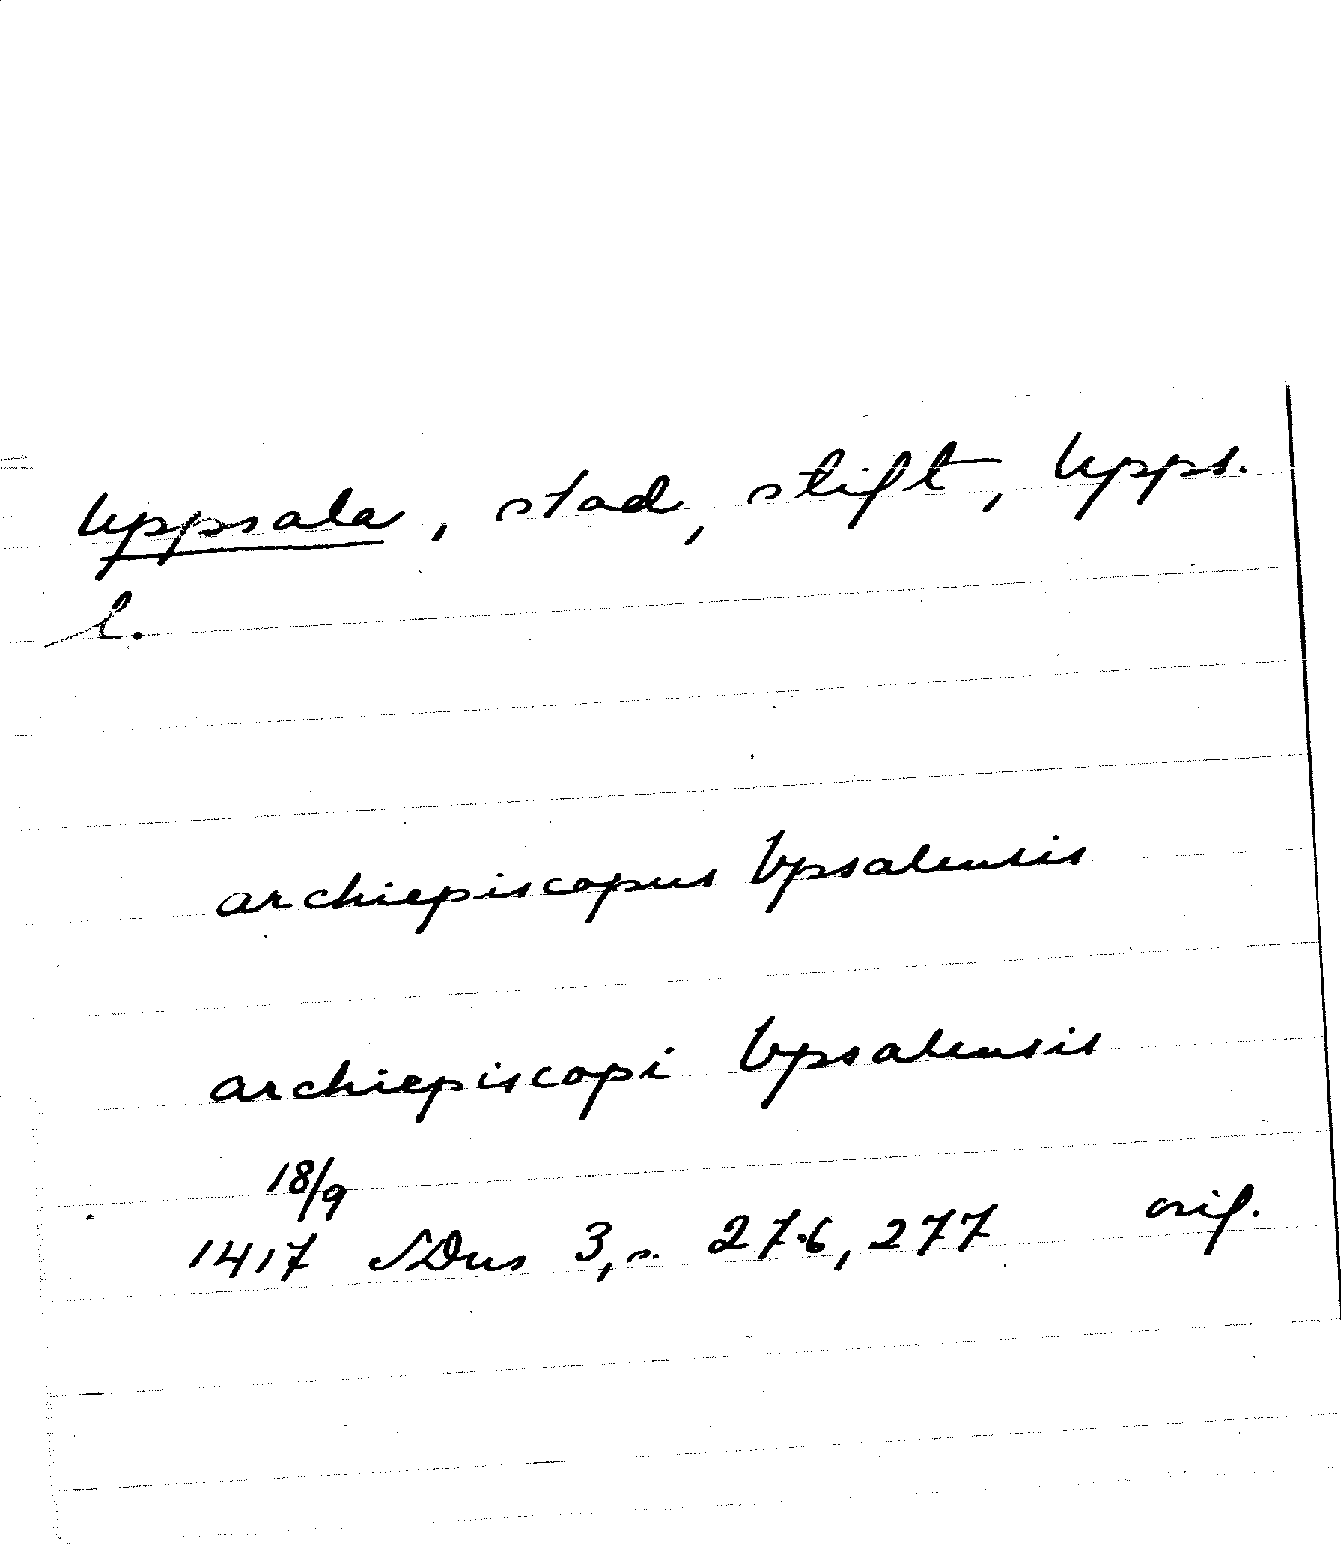 Uppsala, stad, stift, Upps.
l.
archiepiscopus Vpsalensis
archiepiscopi Vpsalensis
18/9
1417 SDns 3, s. 276, 277 orig.